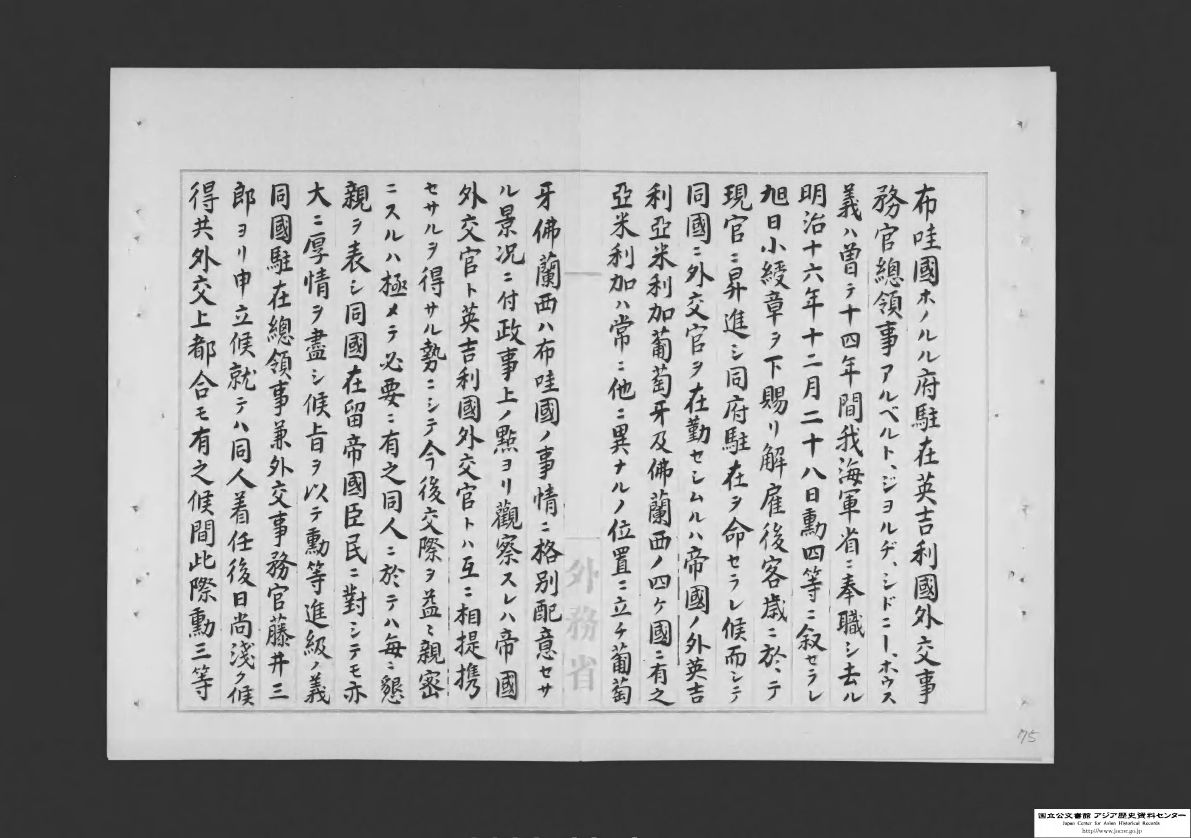 布哇國ホノルル府駐在英吉利國外交事
務官總領事アルベルト、ジヨルヂ、シドニー、ホウス
義ハ曽テ十四年間我海軍省ニ奉職シ去ル
明治十六年十二月二十八日勳四等ニ叙セラレ
旭日小綬章ヲ下賜リ解雇後客歳ニ於テ
現官ニ昇進シ同府駐在ヲ命セラレ候而シテ
同國ニ外交官ヲ在勤セシムルハ帝國ノ外英吉
利亞米利加葡萄牙及佛蘭西ノ四ケ國ニ有之
亞米利加ハ常ニ他ニ異ナルノ位置ニ立チ葡萄
外務省
牙佛蘭西ハ布哇國ノ事情ニ格別配意セサ
ル景況ニ付政事上ノ點ヨリ觀察スレハ帝國
外交官ト英吉利國外交官トハ互ニ相提携
セサルヲ得サル勢ニシテ今後交際ヲ益々親密
ニスルハ極メテ必要ニ有之同人ニ於テハ毎ニ懇
親ヲ表シ同國在留帝國臣民ニ對シテモ亦
大ニ厚情ヲ盡シ候旨ヲ以テ勳等進級ノ義
同國駐在總領事兼外交事務官藤井三
郎ヨリ申立候就テハ同人着任後日尚淺ク候
得共外交上都合モ有之候間此際勳三等
75
国立公文書館 アジア歴史資料センター
Japan Center for Asian Historical Records
http://www.jacar.go.jp